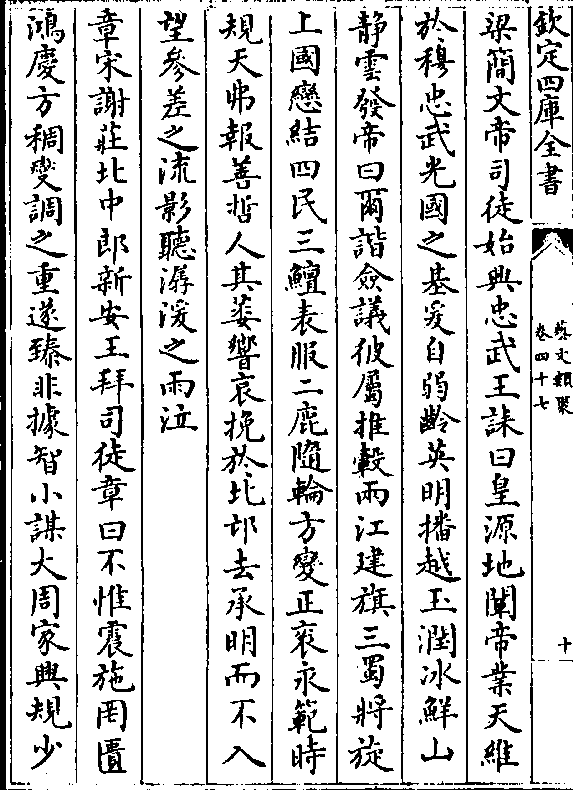 欽定四庫全書
藝文類聚
卷四十七
十
梁簡文帝司徒始興忠武王誄曰皇源地闡帝業天維
於穆忠武光國之基爰自弱齡英明播越玉潤冰鮮山
静雲發帝曰爾諧僉議彼屬推轂兩江建旗三蜀將旋
上國戀結四民三鱣表服二鹿隨輪方變正衮永範時
規天弗報善哲人其萎響哀挽於圯邙去承明而不入
望參差之流影聽潺湲之雨泣
章宋謝莊北中郎新安王拜司徒章曰不惟震施罔匱
鴻慶方稠燮調之重遂臻非據智小謀大周家興規少